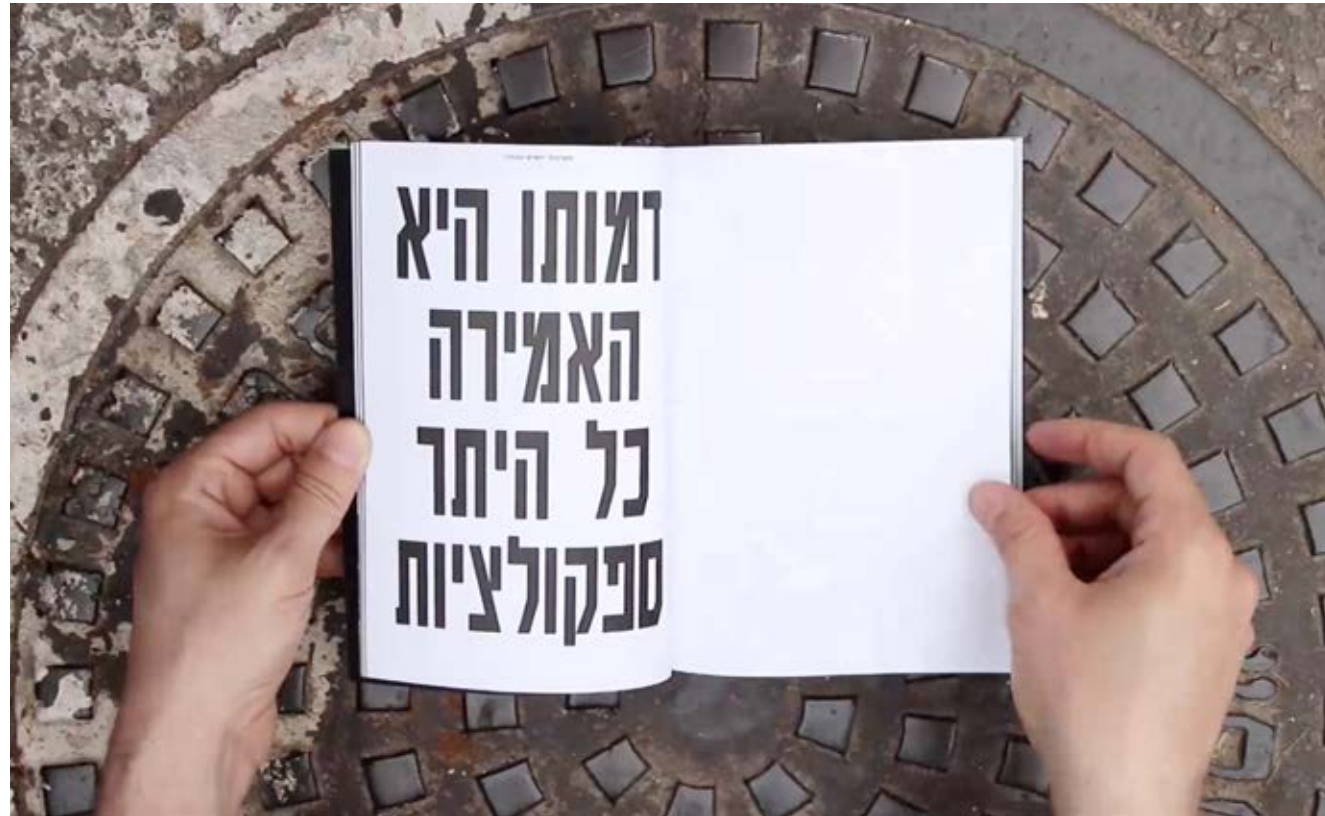 דמותו היא
האמירה
כל היתר
ספקולציות